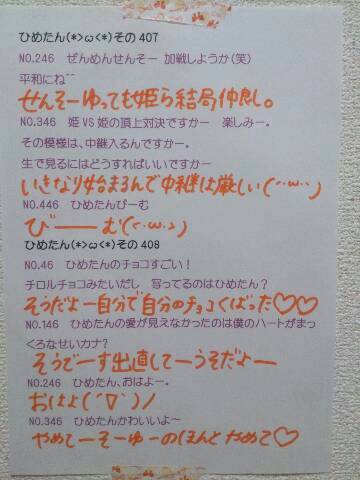 ひめたん(*>ω<*)その 407
NO.246　ぜんめんせんそー 加戦しようか(笑)
平和にね^^
せんそーゆっても姫ら結局仲良し。
NO.346　姫 VS 姫の頂上対決ですかー　楽しみー。
その模様は、中継入るんですかー。
生で見るにはどうすればいいですかー
いきなり始まるんで中継は厳しい(´･ω･･)
NO.446　ひめたんびーむ
びーーむ(´･ω･｀)
ひめたん(*>ω<*)その 408
NO.46　ひめたんのチョコすごい！
チロルチョコみたいだし　写ってるのはひめたん？
そうだよー自分で自分のチョコくばった♡♡
NO.146　ひめたんの愛が見えなかったのは僕のハートがまっ
くろなせいカナ？
そうでーす出直してーうそだよー
NO.246　ひめたん、おはよー。
おはよ(´∇｀)ノ
NO.346　ひめたんかわいいよ～
やめてーそーゆーのほんとやめて♡